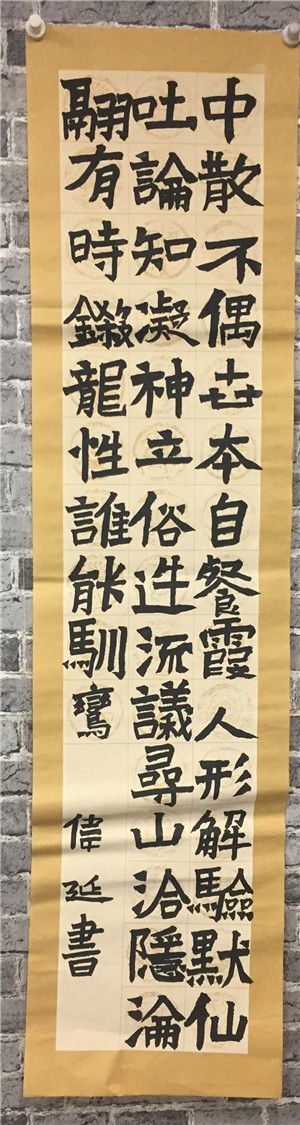 中散不偶世本自餐霞人形解驗默仙
吐論知凝神立俗迕流議尋山洽隱淪
翮有時鎩龍性誰能馴鸞
偉延書